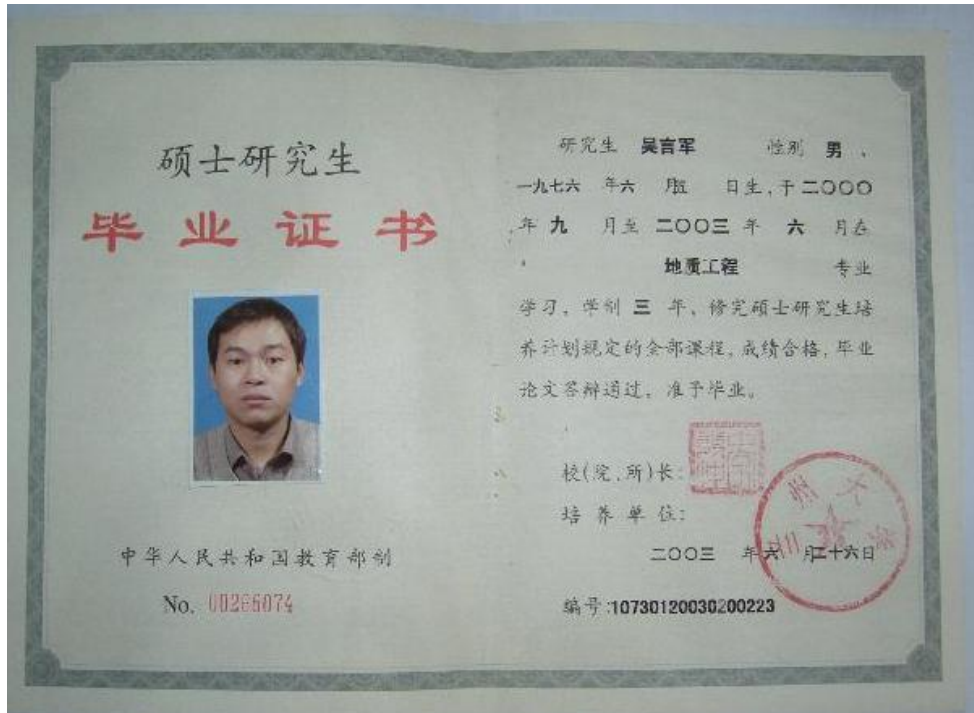 硕士研究生
毕业证书
中华人民共和国教育部制
No. 00266074
研究生 吴言军 性别 男、
一九七六 年六 月五 日生,于二〇〇〇
年 九 月至 二〇〇三 年 六 月在
地质工程 专业
学习,学制 三 年、修完硕士研究生培
养计划规定的全部课程,成绩合格,毕业
论文答辩通过,准予毕业。
校(院、所)长:
培养单位:
二〇〇三 年六 月二十六日
编号:10730120030200223
兰州大学